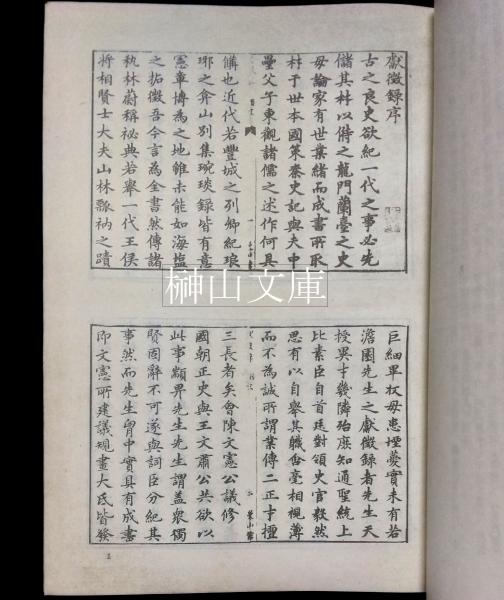 獻徵錄序
古之良史欲紀一代之事必先
儲其材以待之龍門蘭臺之史
毋論家有世業緒而成書所取
材于世本國策秦史記與夫中
壘父子東觀諸儒之述作何具
備也近代若豐城之列卿紀琅
琊之弇山別集琬琰錄皆有意
憲章博爲之地雖未能如海鹽
之拓徵吾今言爲全書然傳諸
執林蔚稱祕典若舉一代王侯
將相賢士大夫山林瓢衲之蹟
巨細畢收毋患堙薆實未有若
澹園先生之獻徵錄者先生天
授異才幾隣殆庶知通聖統上
比素臣自首廷對領史官毅然
思有以自舉其職舍毫相視薄
而不爲誠所謂業傳二正才擅
三長者矣會陳文憲公議修
國朝正史與王文肅公共欲以
此事顓畀先生先生謂蓋衆獨
賢固辭不可遂與詞臣分紀其
事然而先生胷中實具有成書
即文憲所建議規畫大氐皆發
榊山文庫